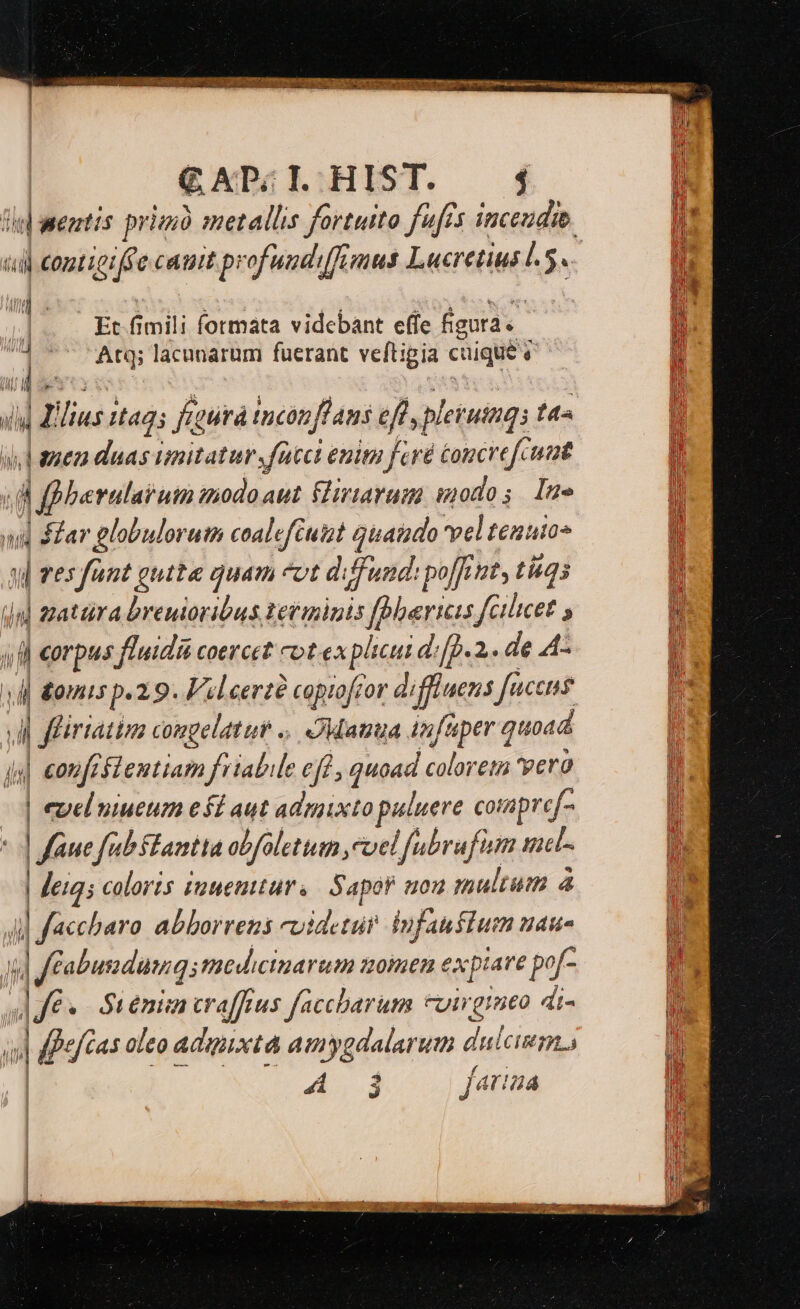 CAP. I. HIST. 5
mentis primò metallis fortuito fusis incendio
contigisse canit profundissimus Lucretius l. 5.
Et simili formata videbant esse figura.
Atq; lacunarum fuerant vestigia cuique.
Illius itaq; figurá inconstans est, plerumq; ta-
men duas imitatur, succi enim ferè concrescunt
sphærularum modo aut stiriarum modo; In-
star globulorum coalescunt quando vel tenuio-
res sunt guttæ quam vt diffundi possint, tũq;
natura breuioribus terminis sphæricis scilicet,
corpus fluidũ coercet vt explicui disp. 2. de A-
tomis p. 29. Vel certè copiosior diffluens succus
stiriatim congelatur. Manna insuper quoad
consistentiam friabile est, quoad colorem vero
vel niueum est aut admixto puluere compres-
saue substantia obsoletum, vel subrufum mel-
leiq; coloris inuenitur. Sapor non multum à
saccharo abhorrens videtur infaustum nau-
seabundumq; medicinarum nomen expiare pos-
se. Si enim crassius saccharum virgineo di-
spescas oleo admixta amygdalarum dulcium
A 3 farina